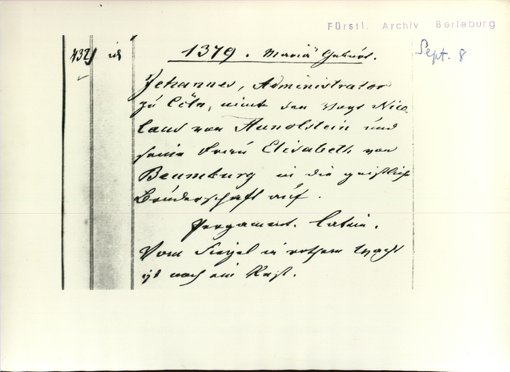 Fürstl. Archiv Berleburg
Sept. 8
1379. Mariä Geburt.
Johannes, Administrator
zu Cöln, nimt den Vogt Nico
laus von Hunolstein und
seine Frau Elisabeth von
Beumburg in die geistliche
Brüderschaft auf.
Pergament. Latein.
Vom Siegel in rothem Wachs
ist noch ein Rest.